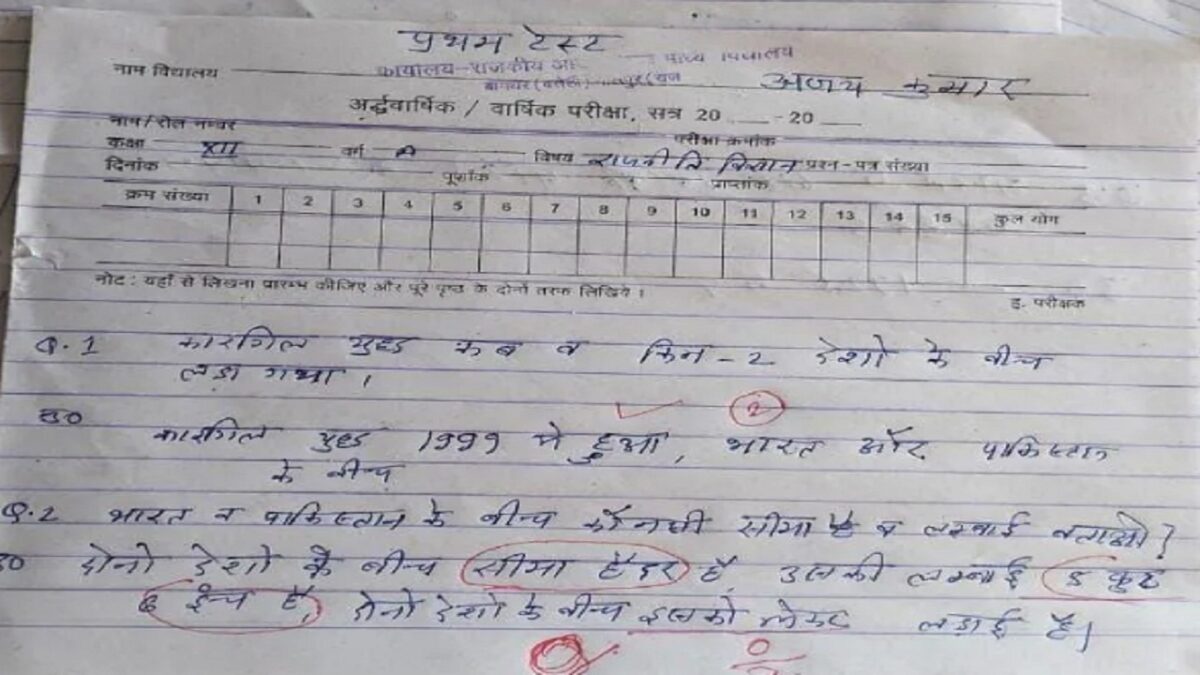 प्रथम टेस्ट
कार्यालय-राजकीय
नाम विद्यालय अजय कुमार
अर्द्धवार्षिक / वार्षिक परीक्षा, सत्र 20 ___ -20 ___
नाम/रोल नम्बर परीक्षा क्रमांक
कक्षा XII वर्ग A विषय राजनीति विज्ञान प्रश्न-पत्र संख्या
दिनांक पूर्णांक प्राप्तांक
क्रम संख्या 1 2 3 4 5 6 7 8 9 10 11 12 13 14 15 कुल योग
नोट : यहाँ से लिखना प्रारम्भ कीजिए और पूरे पृष्ठ के दोनों तरफ लिखिये।
ह. परीक्षक
Q.1 कारगिल युद्ध कब व किन-2 देशो के बीच
लडा गया।
2
उ0 कारगिल युद्ध 1999 मे हुआ, भारत और पाकिस्तान
के बीच
Q.2 भारत व पाकिस्तान के बीच कौनसी सीमा है व लम्बाई बताओ?
उ0 दोनो देशो के बीच सीमा हैदर है, उसकी लम्बाई 5 फुट
6 ईन्च है, दोनो देशो के बीच इसको लेकर लडाई है।
0